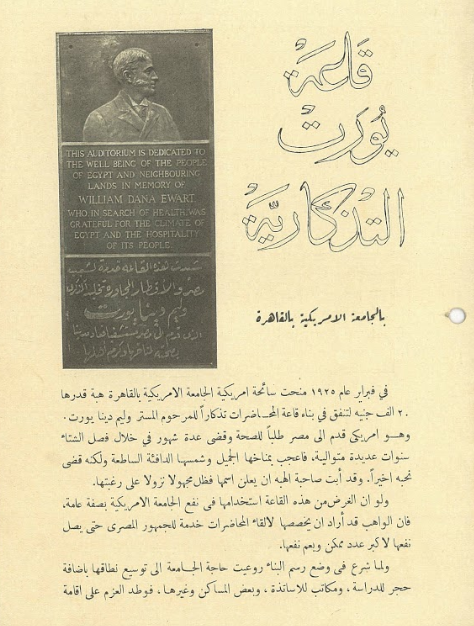 قاعة
يورت
التذكارية
THIS AUDITORIUM IS DEDICATED TO
THE WELL BEING OF THE PEOPLE
OF EGYPT AND NEIGHBOURING
LANDS IN MEMORY OF
WILLIAM DANA EWART
WHO IN SEARCH OF HEALTH, WAS
GRATEFUL FOR THE CLIMATE OF
EGYPT AND THE HOSPITALITY
OF ITS PEOPLE
شيدت هذه القاعة خدمة لشعب
مصر والأقطار المجاورة تخليدا لذكرى
وليم دينا يورت
بالجامعة الامريكية بالقاهرة
في فبراير عام ١٩٢٥ منحت سائحة امريكية الجامعة الامريكية بالقاهرة هبة قدرها
٢٠ الف جنيه لتنفق في بناء قاعة المحاضرات تذكاراً للمرحوم المستر وليم دينا يورت.
وهو امريكى قدم الى مصر طلباً للصحة وقضى عدة شهور في خلال فصل الشتاء
سنوات عديدة متوالية، فاعجب بمناخها الجميل وشمسها الدافئة الساطعة ولكنه قضى
نحبه اخيراً. وقد أبت صاحبة الهبه ان يعلن اسمها فظل مجهولا نزولا على رغبتها.
ولو ان الغرض من هذه القاعة استخدامها في نفع الجامعة الامريكية بصفة عامة،
فان الواهب قد أراد ان يخصصها لالقاء المحاضرات خدمة للجمهور المصرى حتى يصل
نفعها لاكبر عدد ممكن ويعم نفعها.
ولما شرع في وضع رسم البناء روعيت حاجة الجامعة الى توسيع نطاقها باضافة
حجر للدراسة، ومكاتب للاساتذة، وبعض المساكن وغيرها، فوطد العزم على اقامة